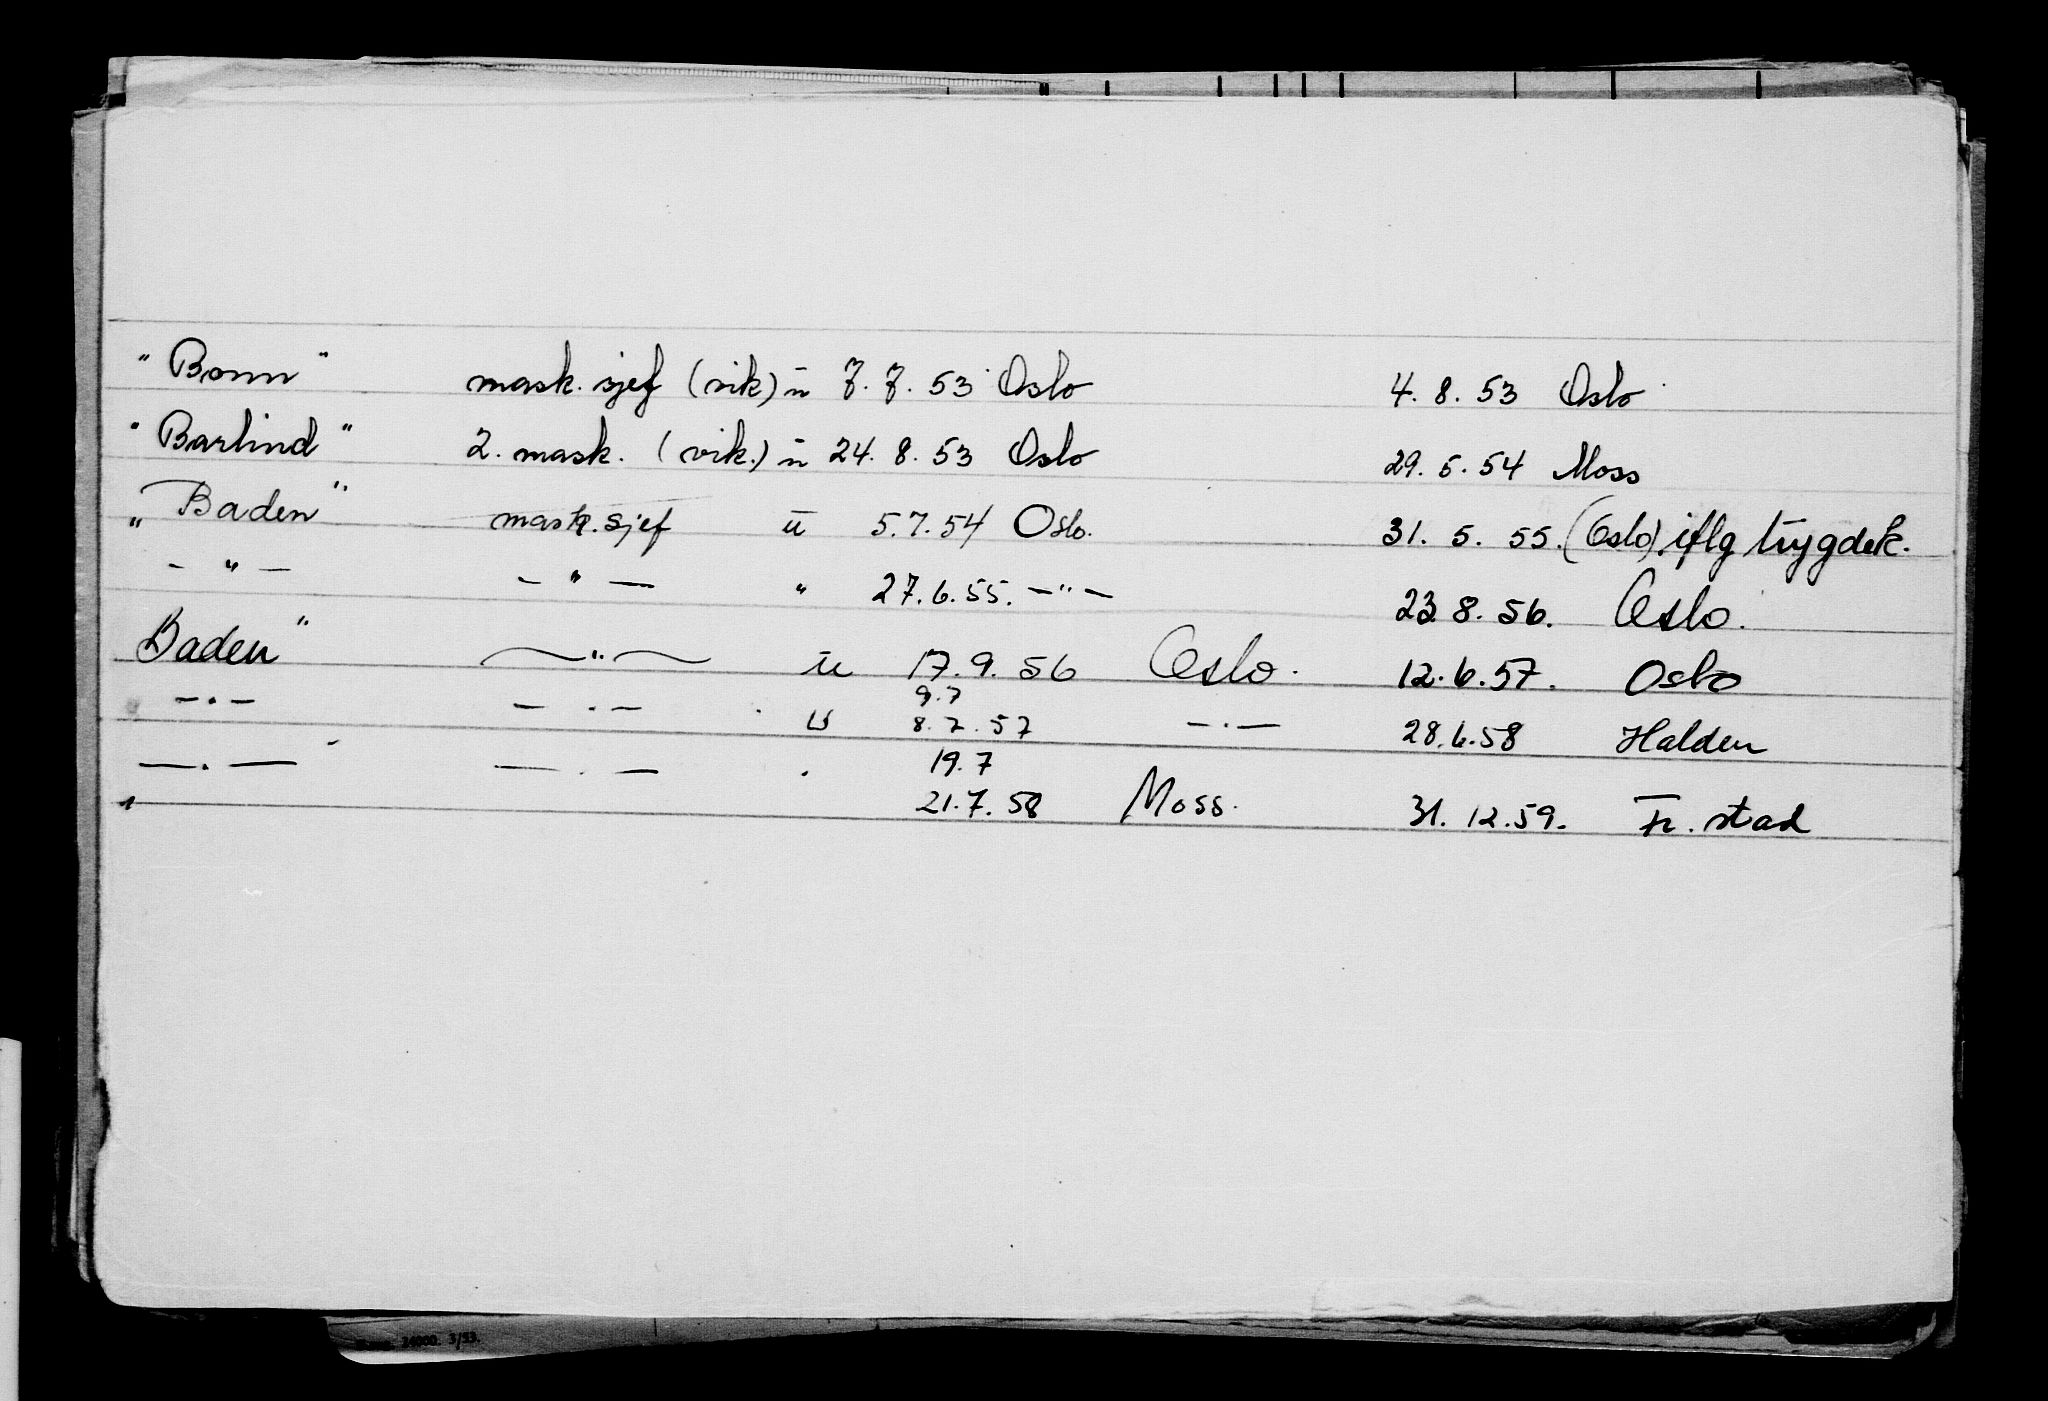 "Bonn" mask. sjef (vik) ū 7. 7. 53 Oslo 4. 8. 53 Oslo
"Barlind" 2. mask. (vik.) ū 24. 8. 53 Oslo 29. 5. 54 Moss
"Baden" mask. sjef ū 5.7.54 Oslo. 31. 5. 55. (Oslo). iflg trygdek.
— " — — " — " 27.6.55. — " — 23.8.56. Oslo.
"Baden" — " — ū 17.9.56 Oslo. 12.6.57. Oslo
9.7
— " — — " — u 8.7.57 — " — 28.6.58 Halden
— " — — " — " 19.7
21.7.58 Moss. 31.12.59. Fr. stad
24000. 3/53.